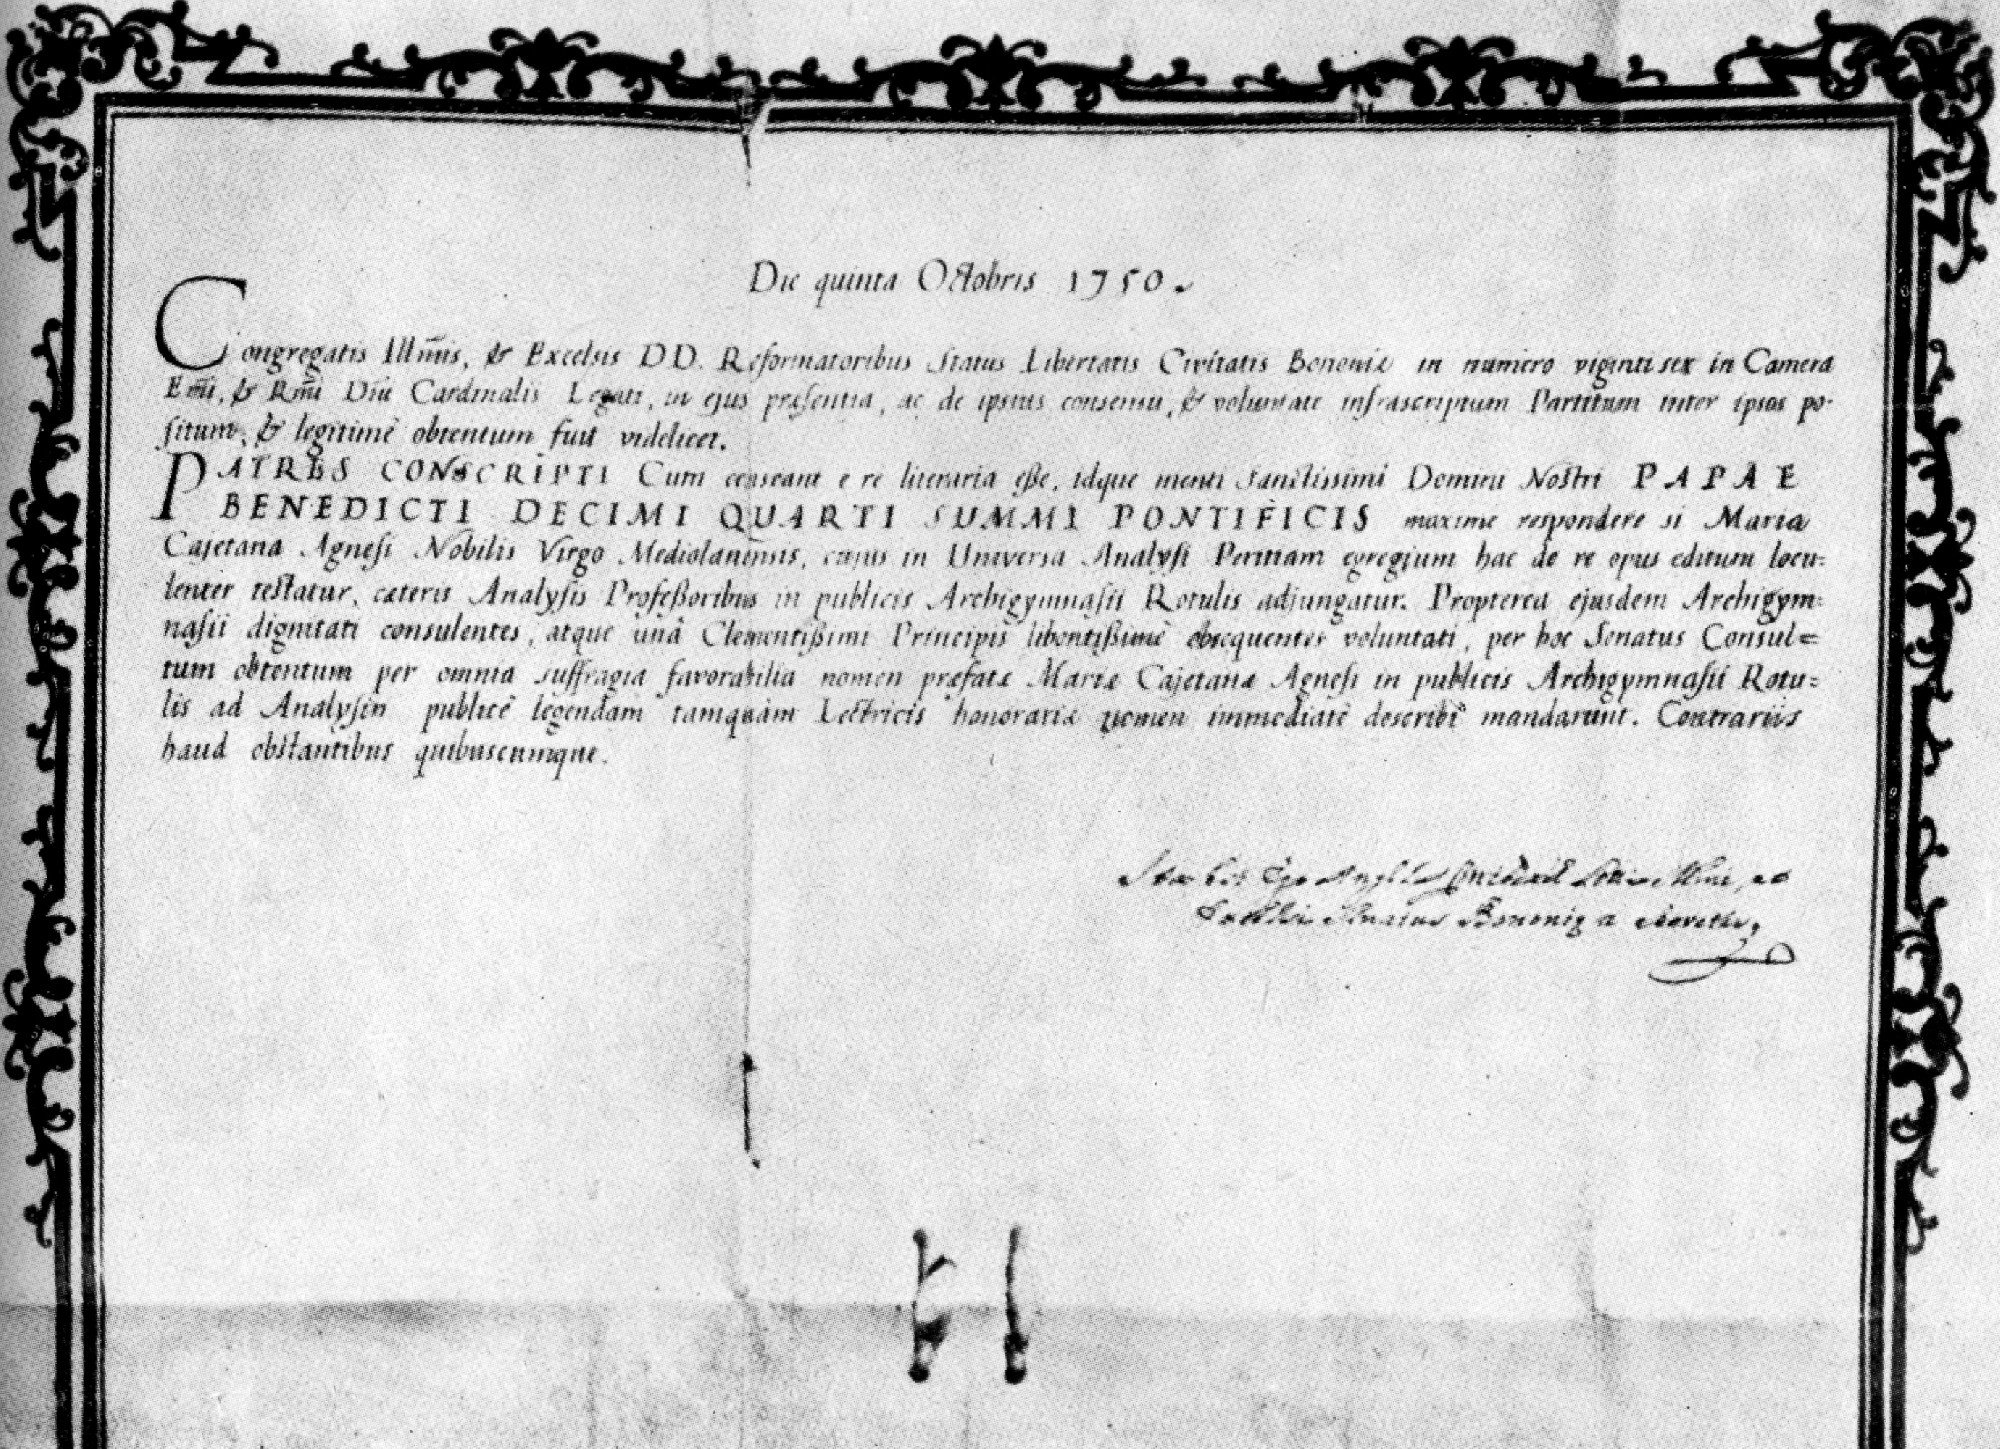 Die quinta Octobris 1750.
Congregatis Illm̃is, & Excelsis DD. Reformatoribus Status Libertatis Civitatis Bononiæ in numero viginti sex in Camera
Em̃i, & Rm̃i Dñi Cardinalis Legati, in ejus præsentia, ac de ipsius consensu, & voluntate infrascriptum Partitum inter ipsos po-
situm, & legitimè obtentum fuit videlicet.
PATRES CONSCRIPTI Cum censeant e re literaria eße, idque menti Sanctissimi Domini Nostri PAPAE
BENEDICTI DECIMI QUARTI SUMMI PONTIFICIS maxime respondere si Maria
Cajetana Agnesi Nobilis Virgo Mediolanensis, cujus in Universa Analysi Peritiam egregium hac de re opus editum locu-
lenter testatur, cæteris Analysis Profeßoribus in publicis Archigymnasii Rotulis adjungatur. Propterea ejusdem Archigym-
nasii dignitati consulentes, atque unà Clementißimi Principis libentißimè obsequentes voluntati, per hoc Senatus Consul=
tum obtentum per omnia suffragia favorabilia nomen præfatæ Mariæ Cajetanæ Agnesi in publicis Archigymnasii Rotu=
lis ad Analysin publicè legendam tamquàm Lectricis honorariæ nomen immediatè describi mandarunt. Contrariis
haud obstantibus quibuscumque.
Senatus Bononiæ a Secretis.